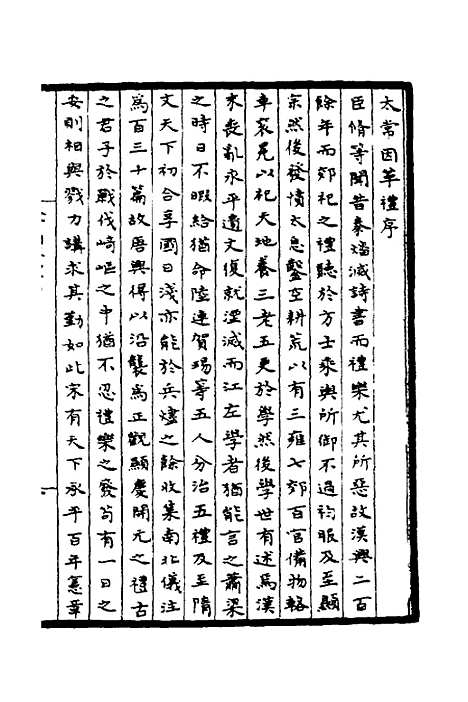 太常因革禮序
臣脩等聞昔秦燔滅詩書而禮樂尤其所惡故漢興二百
餘年而郊祀之禮聽於方士乘輿所御不過袀服及至顯
宗然後發憤太息鑿空耕荒以有三雍七郊百官備物輅
車衮冕以祀天地養三老五更於學然後學世有述焉漢
末喪亂永平遺文復就湮滅而江左學者猶能言之蕭梁
之時日不暇給猶命陸璉賀瑒等五人分治五禮及至隋
文天下初合享國日淺亦能於兵燼之餘收集南北儀注
為百三十篇故唐興得以沿襲為正觀顯慶開元之禮古
之君子於戰伐崎嶇之中猶不忍禮樂之廢苟有一日之
安則相與戮力講求其勤如此宋有天下承平百年憲章
一